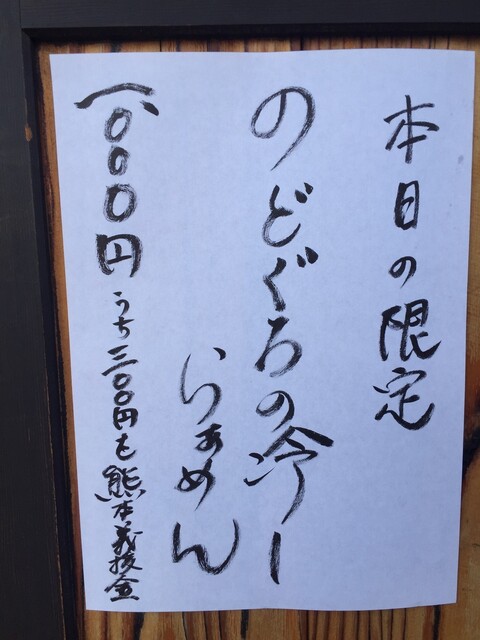 本日の限定
のどぐろの冷し
らぁめん
一、000円 うち三00円を熊本義援金